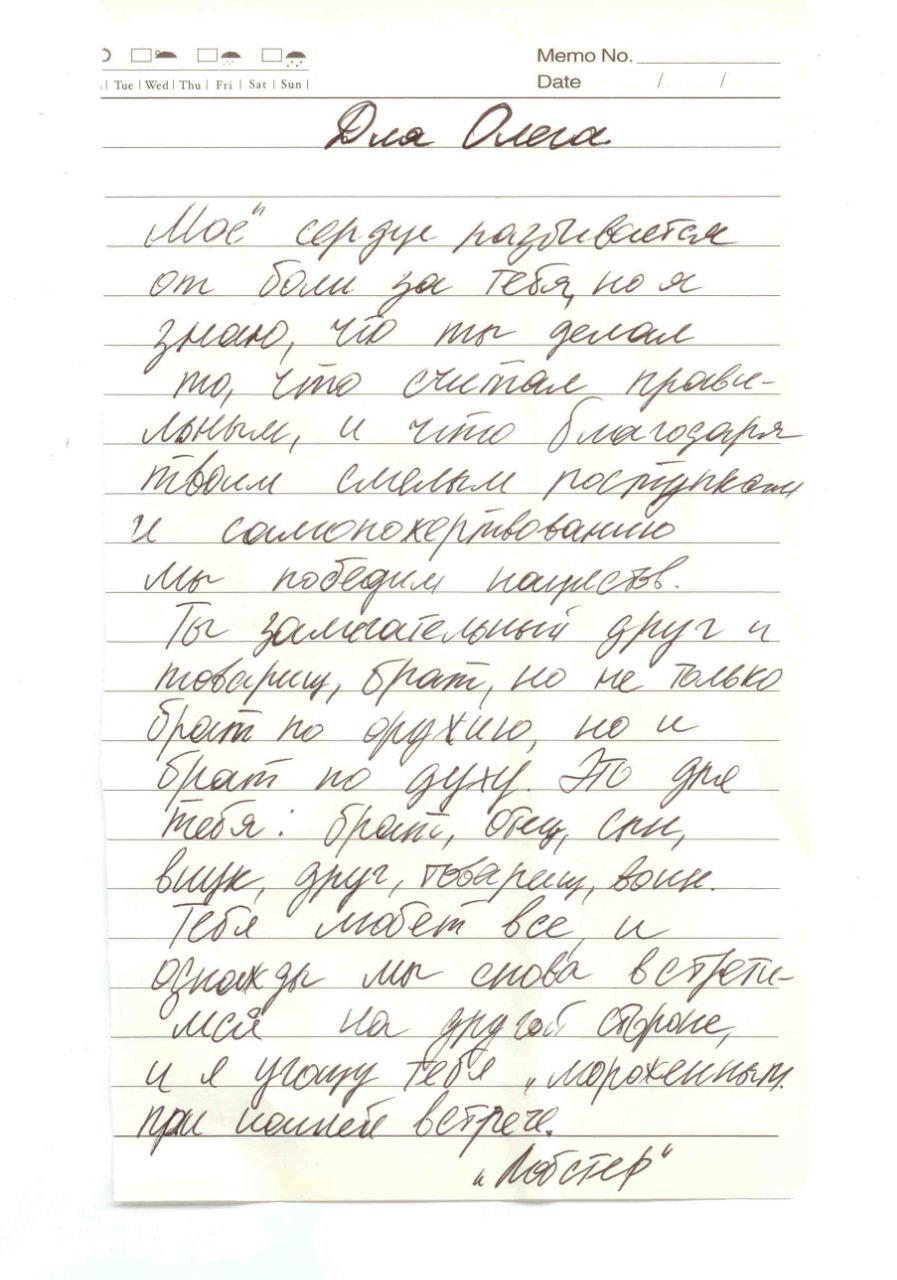 Memo No.
Tue | Wed | Thu | Fri | Sat | Sun |
Date / /
Для Олега.
Моё" сердце разбивается
от боли за тебя, но я
знаю, что ты делал
то, что считал прави-
льным, и что благодаря
твоим смелым поступкам
и самопожертвованию
мы победим нацистов.
Ты замечательный друг и
товарищ, брат, но не только
брат по оружию, но и
брат по духу. Это для
тебя: брат, отец, сын,
внук, друг, товарищ, воин.
Тебя любят все, и
однажды мы снова встрети-
мся на другой стороне,
и я угощу тебя „мороженным
при нашей встрече.
„Лобстер"